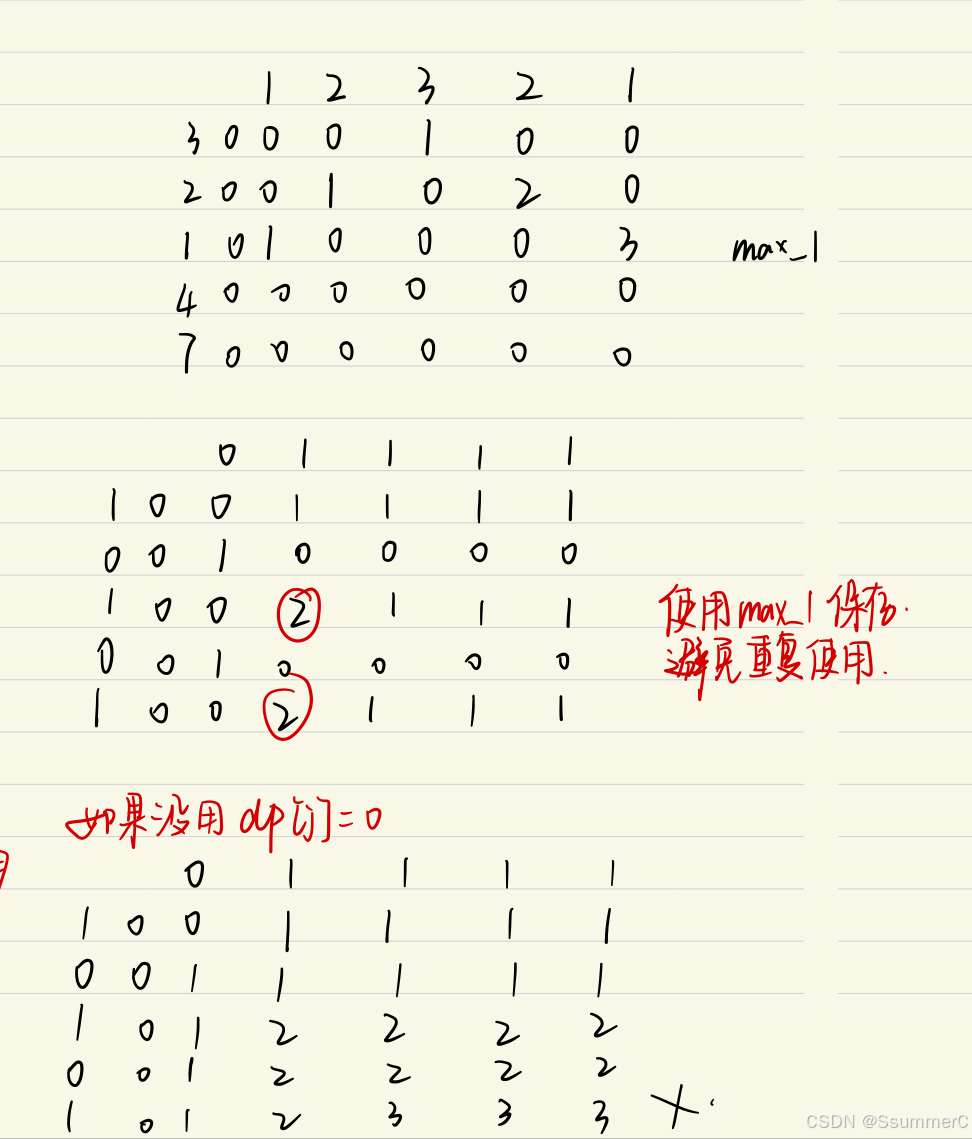 1 2 3 2 1
3 0 0 0 1 0 0
2 0 0 1 0 2 0
1 0 1 0 0 0 3 max_1
4 0 0 0 0 0 0
7 0 0 0 0 0 0
0 1 1 1 1
1 0 0 1 1 1 1
0 0 1 0 0 0 0
1 0 0 2 1 1 1 使用max_1保存.
0 0 1 0 0 0 0 避免重复使用.
1 0 0 2 1 1 1
如果没用 dp[j]=0
0 1 1 1 1
1 0 0 1 1 1 1
0 0 1 1 1 1 1
1 0 1 2 2 2 2
0 0 1 2 2 2 2
1 0 1 2 3 3 3 ×.
CSDN @SsummerC